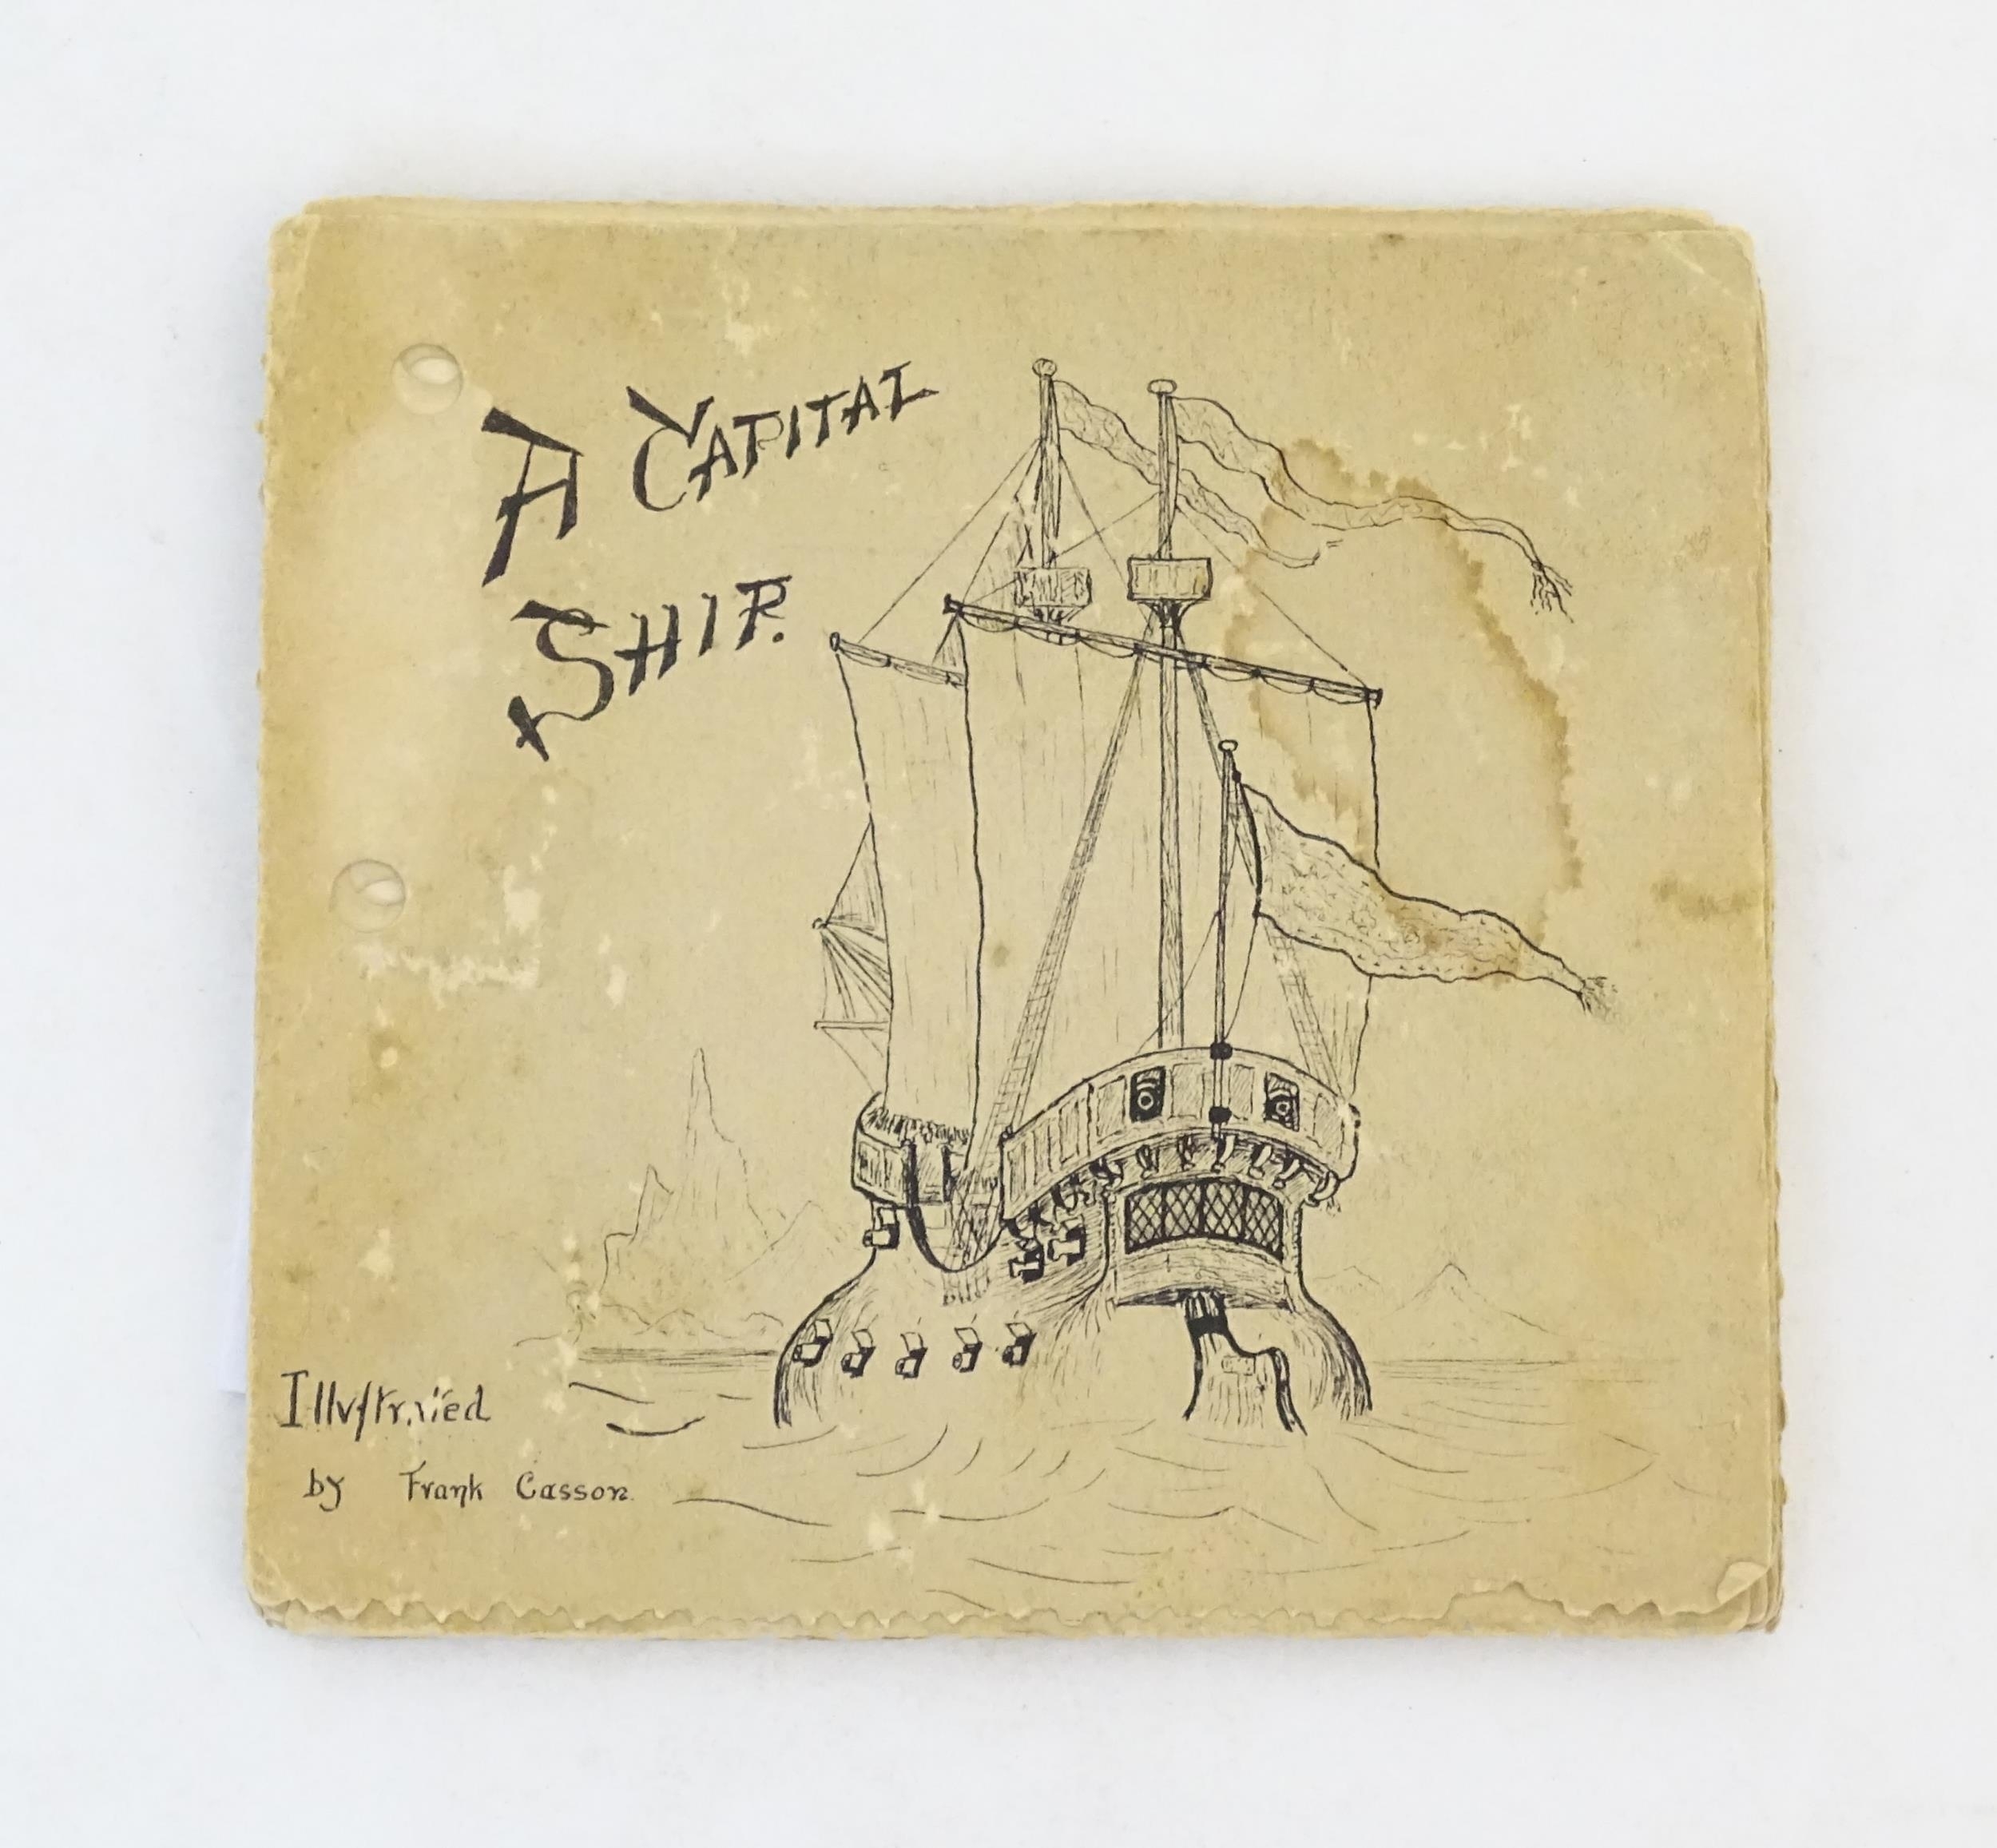 A CAPITAL
SHIP.
Illustrated
by Frank Casson.